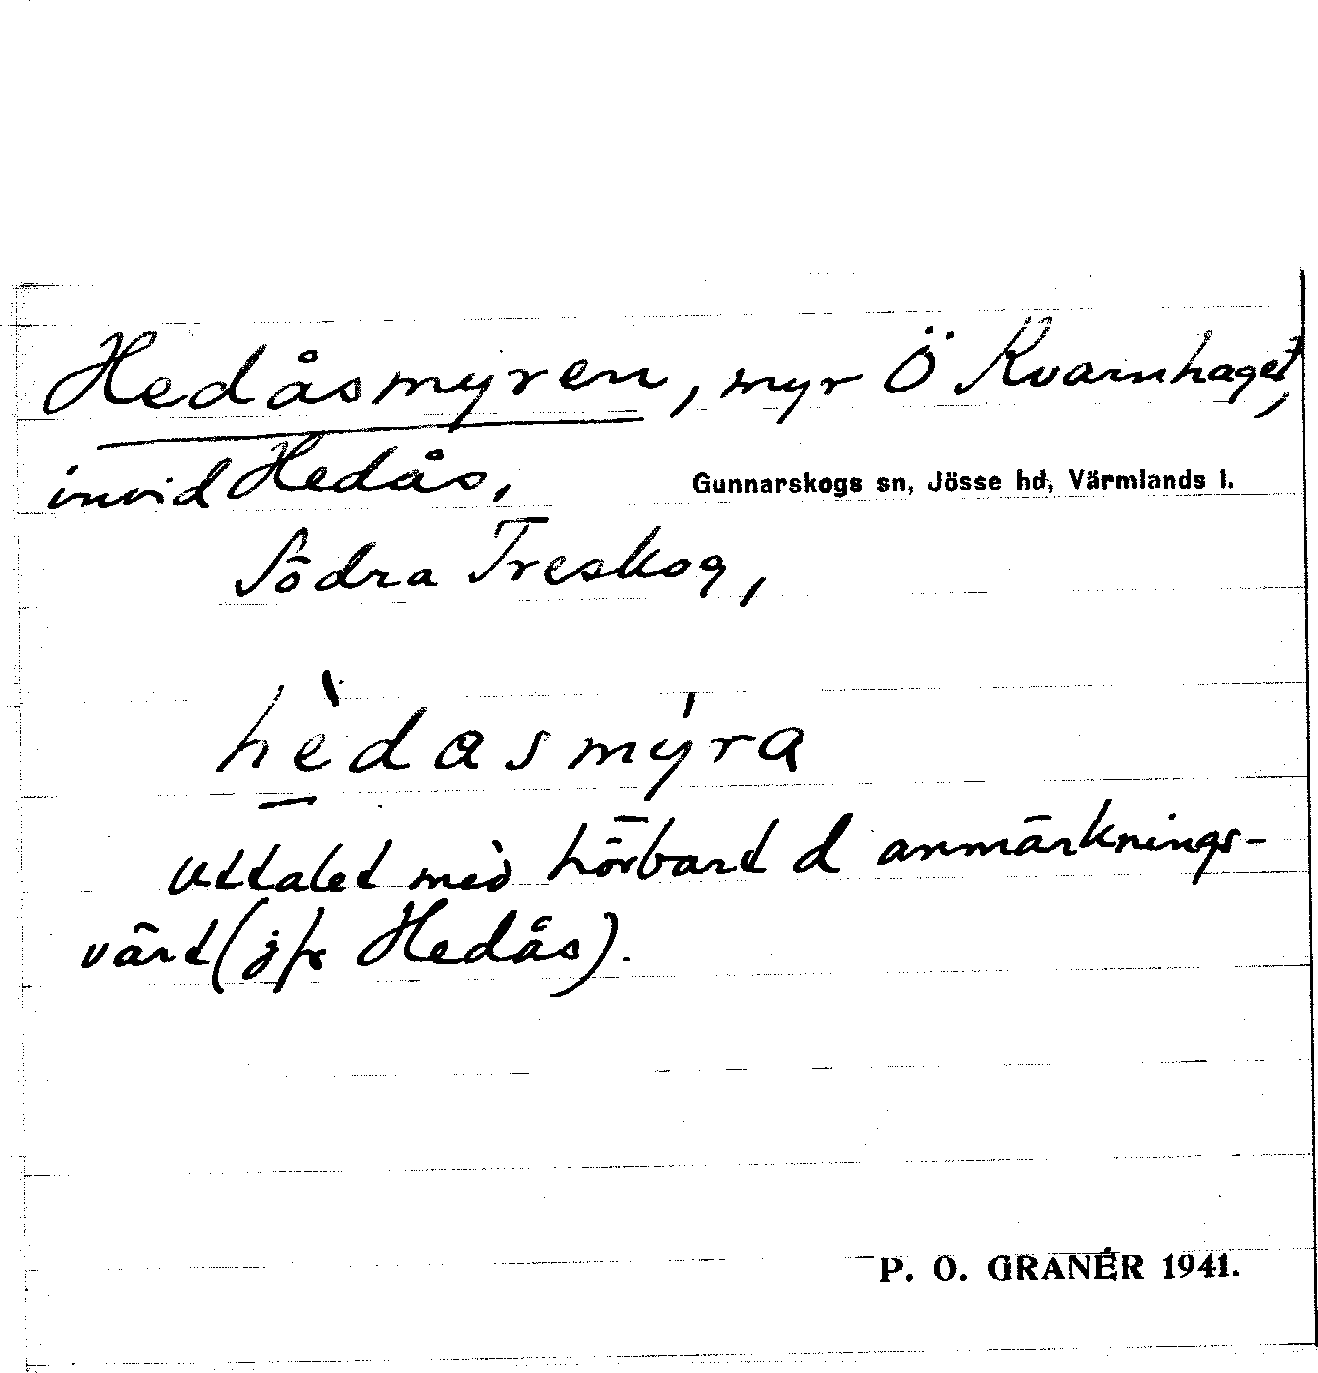 Hedåsmyren, myr Ö Kvarnhaget,
invid Hedås,
Gunnarskogs sn, Jösse hd, Värmlands l.
Södra Treskog,
hèdasmýra
uttalet med hörbart d anmärknings-
värt (jfr Hedås).
P. O. GRANÉR 1941.